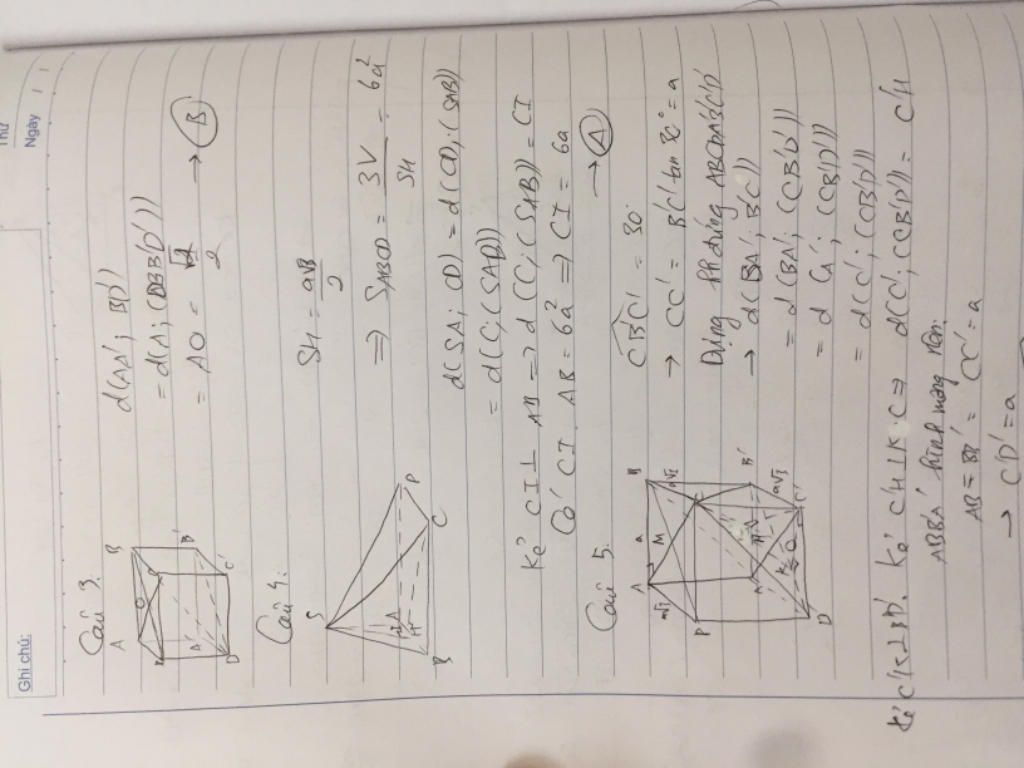 Ghi chú:
Thứ
Ngày
Câu 3.
A B
O
A' B'
D C'
d(AA'; BD')
= d(A; (DBB'D'))
= AO = √2/2 → (B)
Câu 4.
S
A D
B C
SH = a√3/2
⇒ SABCD = 3V/SH = 6a²
d(SA; CD) = d(CD, (SAB))
= d(C; (SAB))
Kẻ CI ⊥ AB ⇒ d(C; (SAB)) = CI
Có CI. AB = 6a² ⇒ CI = 6a
→ (A)
Câu 5.
A a B
a√2 M a√2
D C
A' B'
H a√2
K O
D' C'
CB'C' = 30°
→ CC' = B'C' tan 30° = a
Dựng hình ABCDA'B'C'D'
→ d(BA'; B'C)
= d(BA'; (CB'D'))
= d(A'; (CB'D'))
= d(C'; (CB'D'))
Kẻ C'K ⊥ B'D'. Kẻ C'H ⊥ KC ⇒ d(C'; (CB'D')) = C'H
ABB'A' hình vuông nên
AB = BB' = CC' = a
→ C'D' = a